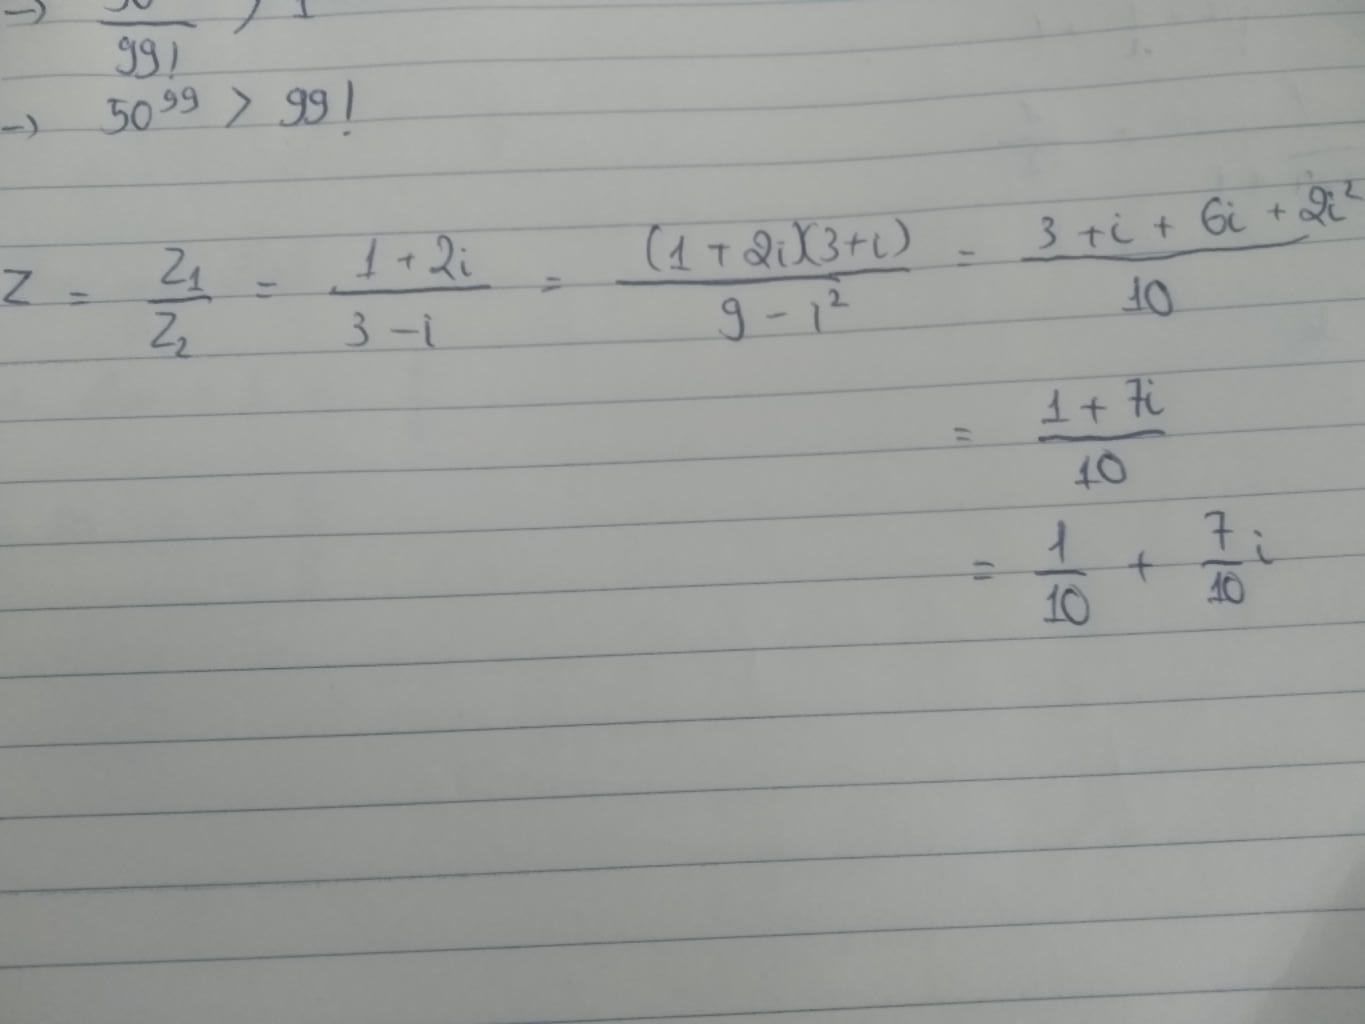 → ──/99! > 1
→ 50⁹⁹ > 99!
Z = Z₁/Z₂ = (1 + 2i)/(3 - i) = (1 + 2i)(3 + i)/(9 - i²) = (3 + i + 6i + 2i²)/10
= (1 + 7i)/10
= 1/10 + 7/10 i